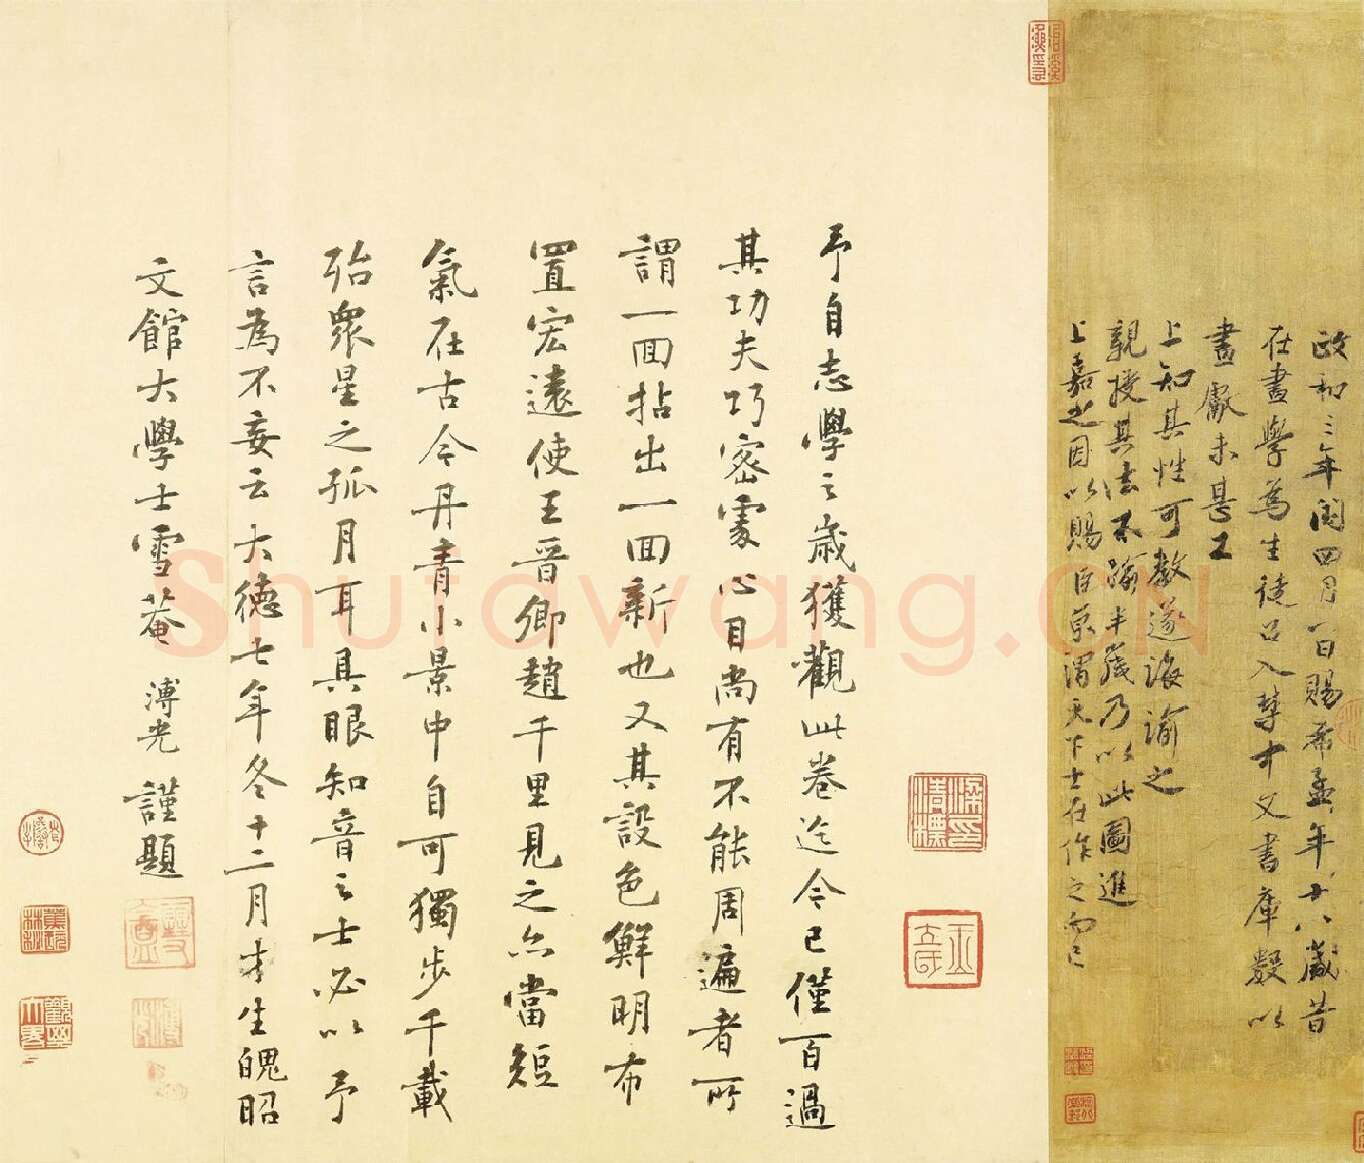 政和三年閏四月一日賜希孟年十八歲昔
在畫學為生徒召入禁中文書庫數以
畫獻未甚工
上知其性可教遂誨諭之
親授其法不踰半歲乃以此圖進
上嘉之因以賜臣京謂天下士在作之而已
予自志學之歲獲觀此卷迄今已僅百過
其功夫巧密處心目尚有不能周遍者所
謂一回拈出一回新也又其設色鮮明布
置宏遠使王晉卿趙千里見之亦當短
氣在古今丹青小景中自可獨步千載
殆眾星之孤月耳具眼知音之士必以予
言為不妄云大德七年冬十二月才生魄昭
文館大學士雪菴 溥光 謹題
Shufawang.CN